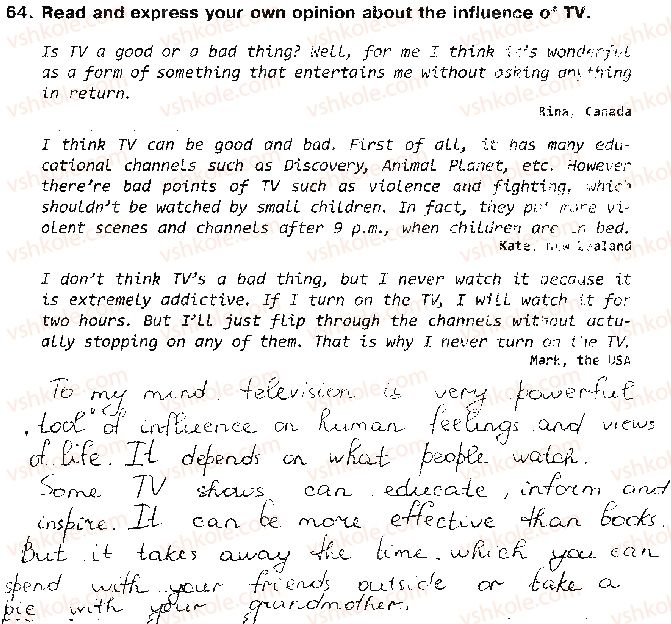 64. Read and express your own opinion about the influence of TV.
Is TV a good or a bad thing? Well, for me I think it's wonderful
as a form of something that entertains me without asking anything
in return.
Rina, Canada
I think TV can be good and bad. First of all, it has many edu-
cational channels such as Discovery, Animal Planet, etc. However
there're bad points of TV such as violence and fighting, which
shouldn't be watched by small children. In fact, they put more vi-
olent scenes and channels after 9 p.m., when children are in bed.
Kate, New Zealand
I don't think TV's a bad thing, but I never watch it because it
is extremely addictive. If I turn on the TV, I will watch it for
two hours. But I'll just flip through the channels without actu-
ally stopping on any of them. That is why I never turn on the TV.
Mark, the USA
To my mind television is very powerful
tool of influence on human feelings and views
of life. It depends on what people watch.
Some TV shows can educate, inform and
inspire. It can be more effective than books.
But it takes away the time which you can
spend with your friends outside or take a
pie with your grandmother.